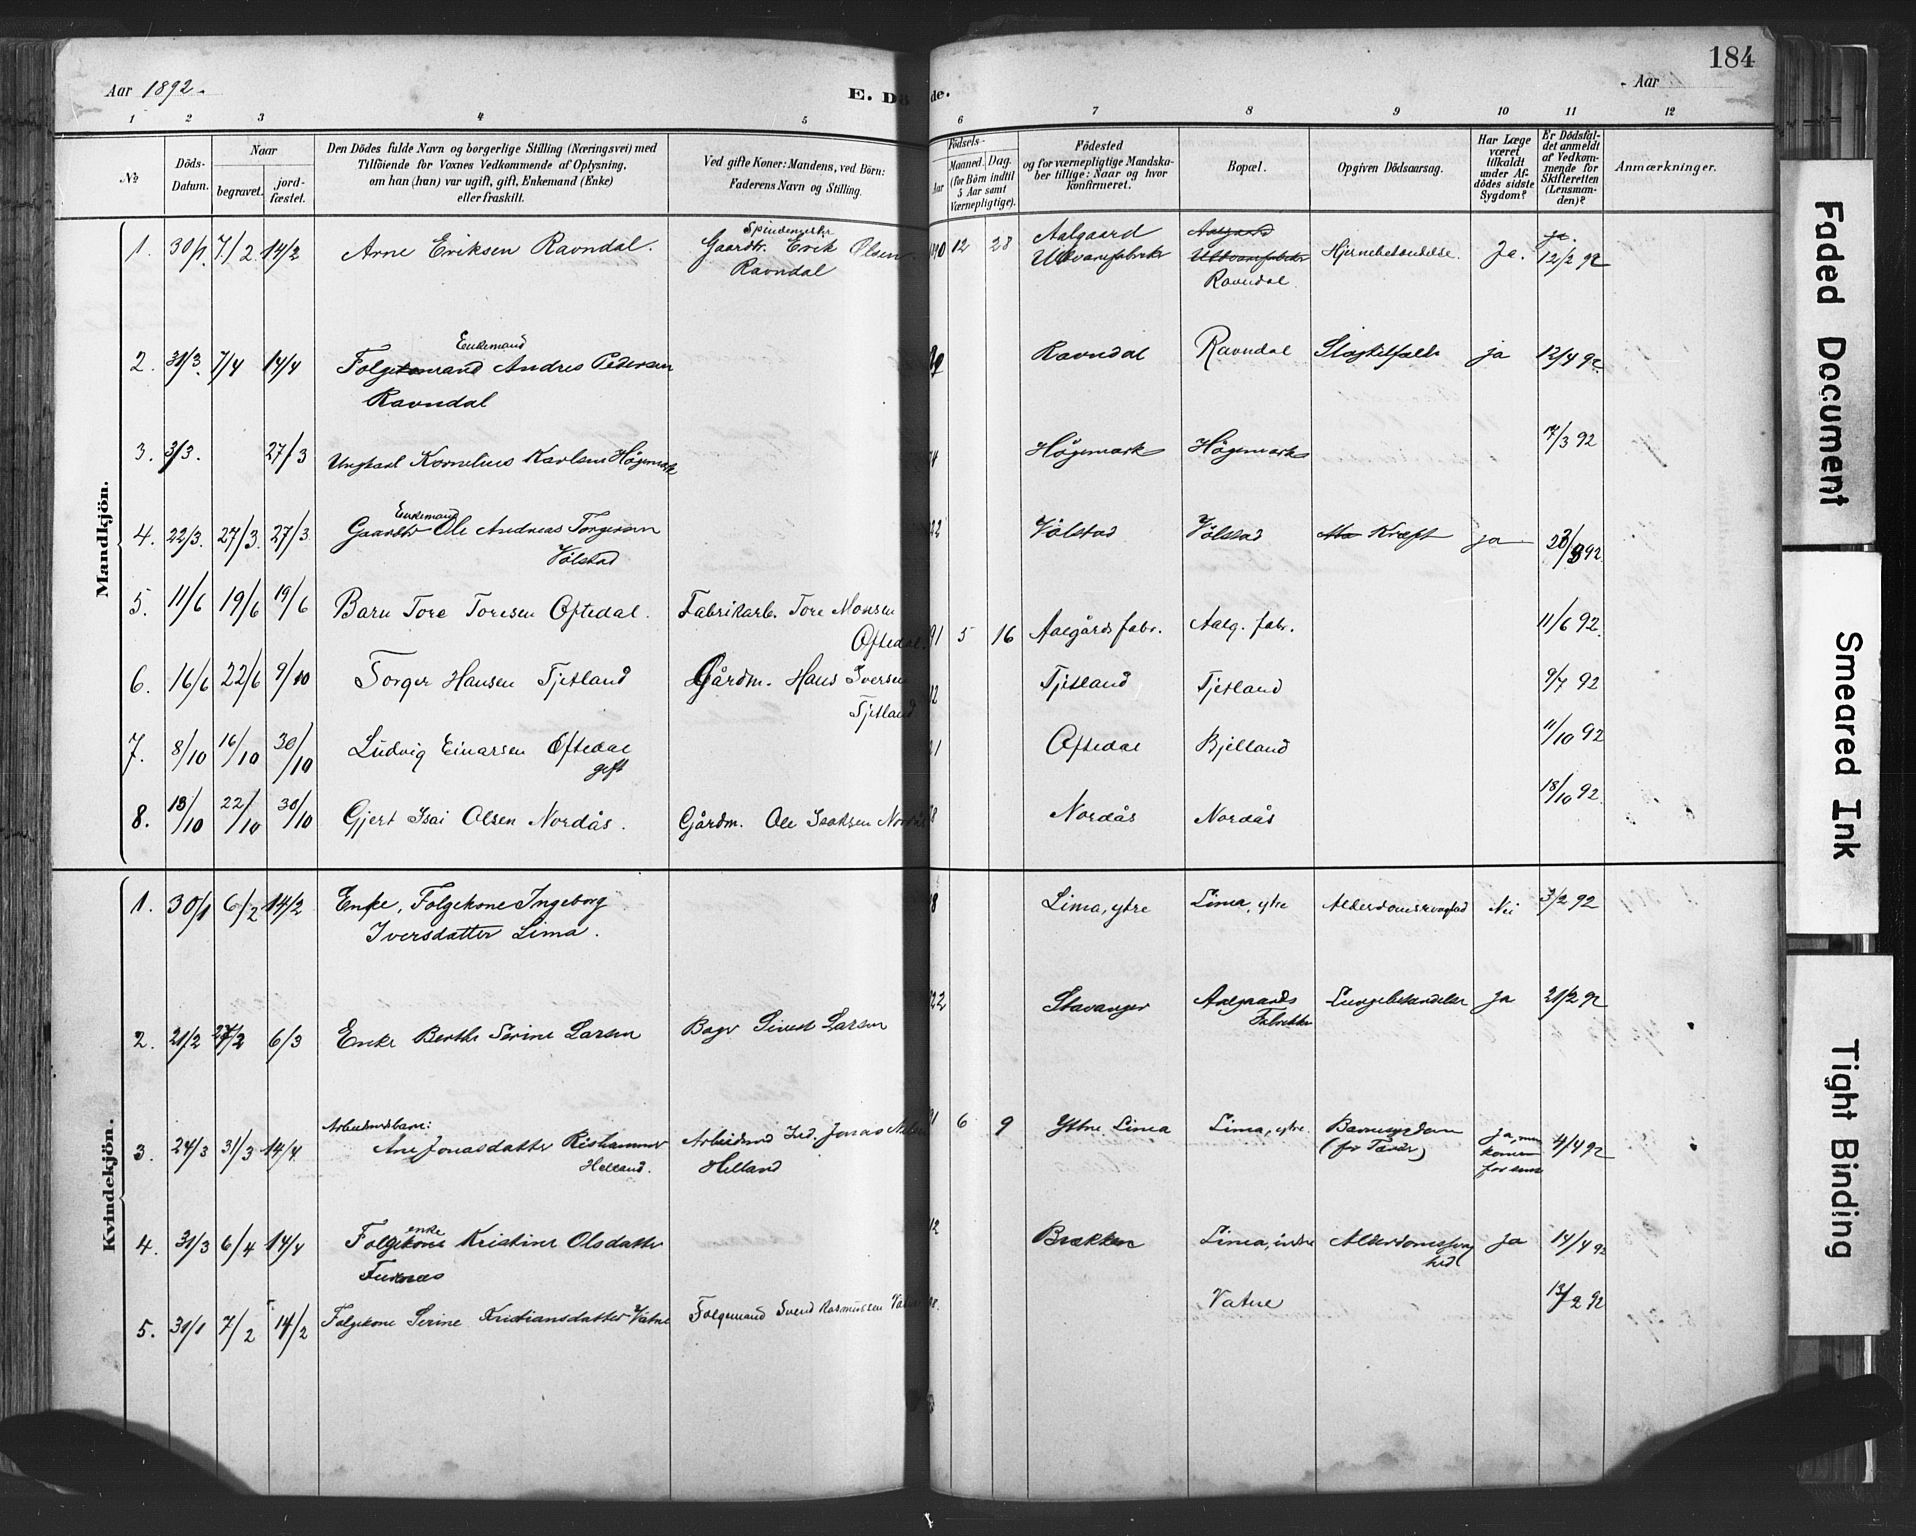 184
Aar 1892.
E. Dö
de.
Aar
1 2 3 4 5
6 7 8 9 10 11 12
№
Döds-
Datum.
Naar
begravet.
jord-
fæstet.
Den Dödes fulde Navn og borgerlige Stilling (Næringsvei) med
Tilföiende for Voxnes Vedkommende af Oplysning,
om han (hun) var ugift, gift, Enkemand (Enke)
eller fraskilt.
Ved gifte Koner: Mandens, ved Börn:
Faderens Navn og Stilling.
Födsels-
Aar
Maaned. Dag.
(for Börn indtil
5 Aar samt
Værnepligtige).
Födested
og for værnepligtige Mandska-
ber tillige: Naar og hvor
konfirmeret.
Bopæl.
Opgiven Dödsaarsag.
Har Læge
været
tilkaldt
under Af-
dödes sidste
Sygdom?
Er Dödsfal-
det anmeldt
af Vedkom-
mende for
Skifteretten
(Lensman-
den)?
Anmærkninger.
Mandkjön.
1. 30/1. 7/2 14/2 Arne Eriksen Ravndal. Gaardbr. Erik Olsen
Ravndal
90 12 28 Aalgaard
Uldvarefabrik
Aalgaards
Uldvarefabrik
Ravndal
Hjernebetændelse. Ja. ja
12/2 92
2. 31/3. 7/4 14/4 Enkemand
Folgemand Andres Pedersen
Ravndal
Ravndal Ravndal Slagtilfælde ja 12/4 92
3. 3/3. 27/3 Ungkarl Kornelius Karlsen Högemark
Högemark Högemark 17/3 92
4. 22/3. 27/3. 27/3 Enkemand
Gaardbr Ole Andreas Torgersen
Völstad
22 Völstad Völstad Kræft ja 23/3 92
5. 11/6 19/6 19/6 Barn Tore Toresen Oftedal. Fabrikarb. Tore Monsen
Oftedal.
91 5 16 Aalgårds fabr. Aalg. fabr. 11/6 92.
6. 16/6 22/6 9/10 Torger Hansen Tjetland Gårdm. Hans Iversen
Tjetland
Tjetland Tjetland 9/7 92
7. 8/10 16/10 30/10 Ludvig Einarsen Oftedal
gift
Oftedal Bjelland 11/10 92
8. 13/10 22/10 30/10 Gjert Isai Olsen Nordås. Gårdm. Ole Isaksen Nordås
Nordås Nordås 18/10 92.
Kvindekjön.
1. 30/1 6/2 14/2 Enke, Folgekone Ingeborg
Iversdatter Lima.
Lima, ytre Lima, ytre Alderdomssvaghed Nei 3/2 92
2. 21/2 27/2 6/3 Enke Berthe Serine Larsen Bager Sivert Larsen
22 Stavanger Aalgaards
Fabrikker
Lungebetændelse Ja 21/2 92
3. 24/3 31/3 14/4 Arbeidsmdsbarn:
Ane Jonasdatter Rishammer
Helland.
Arbeidsmd Jonas
Helland
91 6 9 Yttre Lima Lima, ytre Barnesygdom
Ja, men
4/4 92
4. 31/3 6/4 14/4 enke
Folgekone Kristine Olsdatter
Furenæs
12 Brækken Lima, indre Alderdomssvag
hed
Ja 14/4 92
5. 31/1 7/2 14/2 Folgekone Serine Kristiansdatter Vatne Folgemand Svend Rasmussen Vatne
Vatne 13/2 92
Faded Document
Smeared Ink
Tight Binding